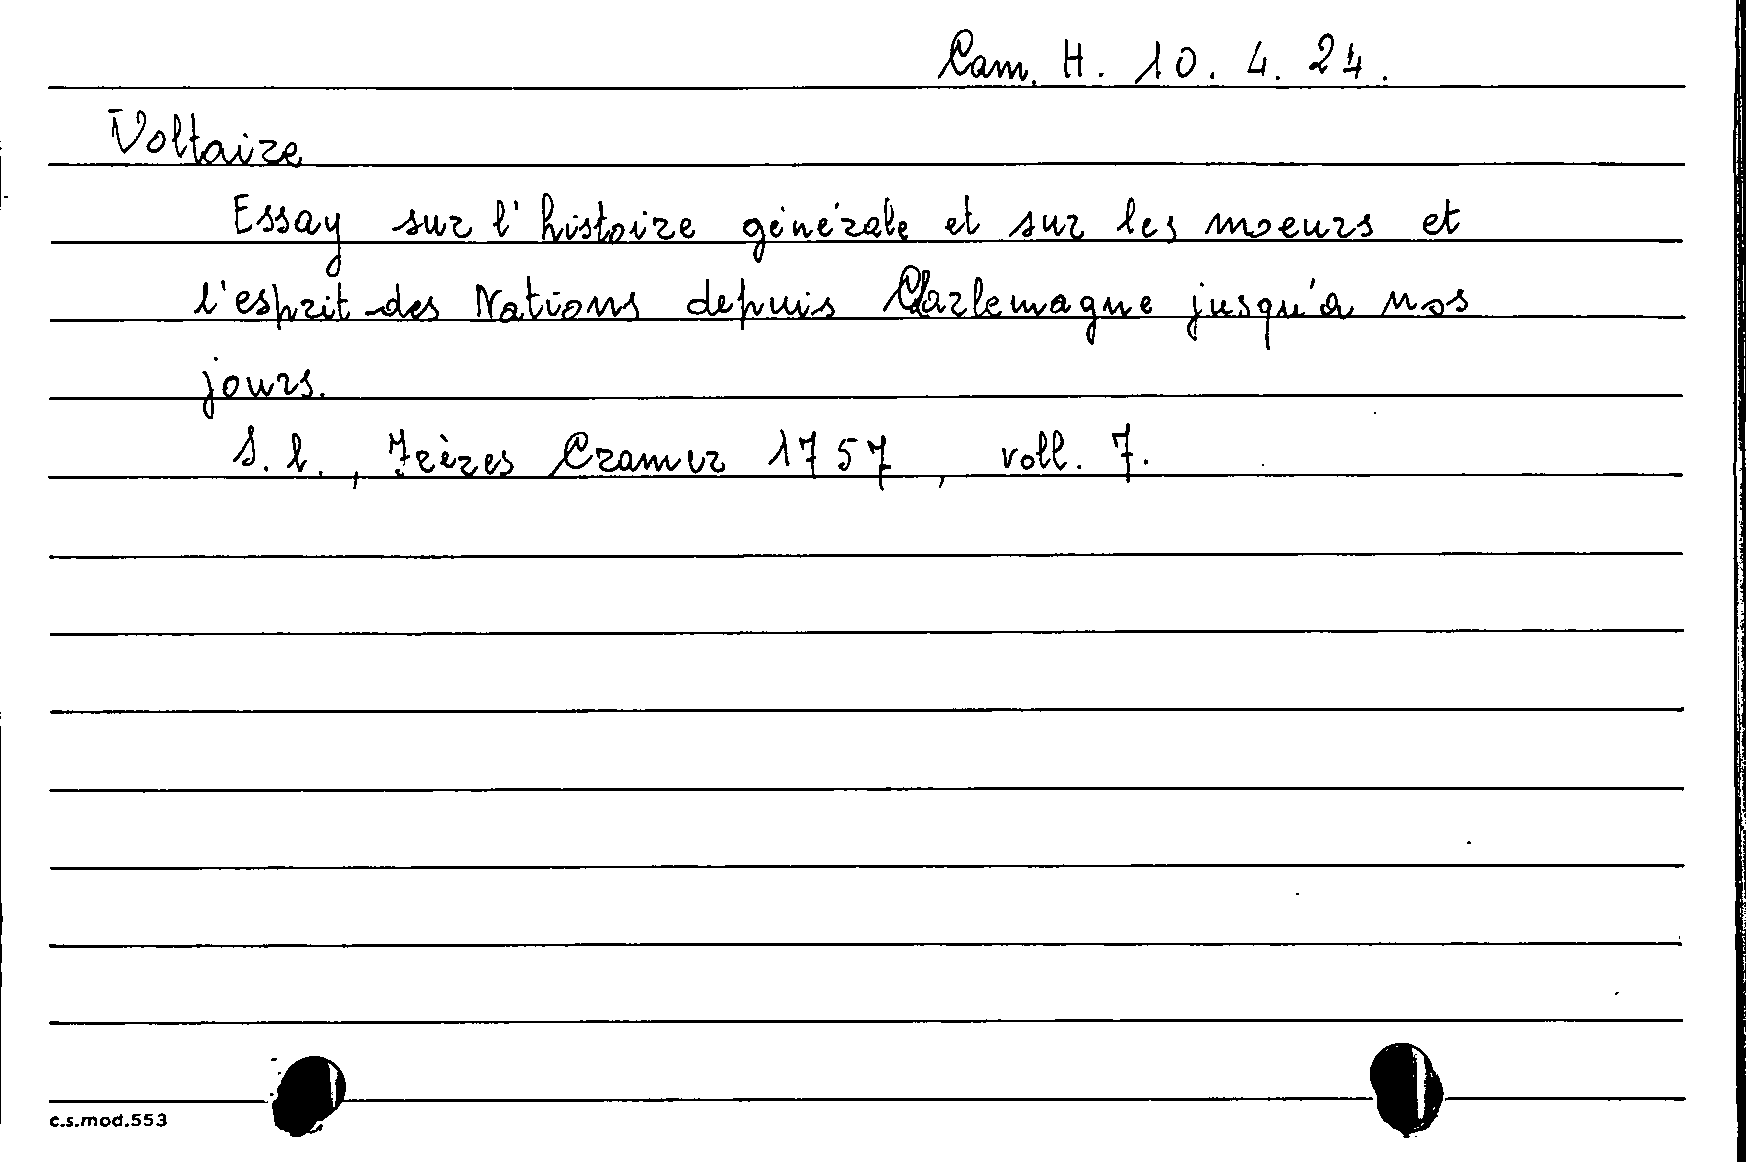 Cam. H. 10. 4. 24.
Voltaire
Essay sur l'histoire générale et sur les moeurs et
l'esprit des Nations depuis Charlemagne jusqu'a nos
jours.
S. l., Frères Cramer 1757, voll. 7.
c.s.mod.553